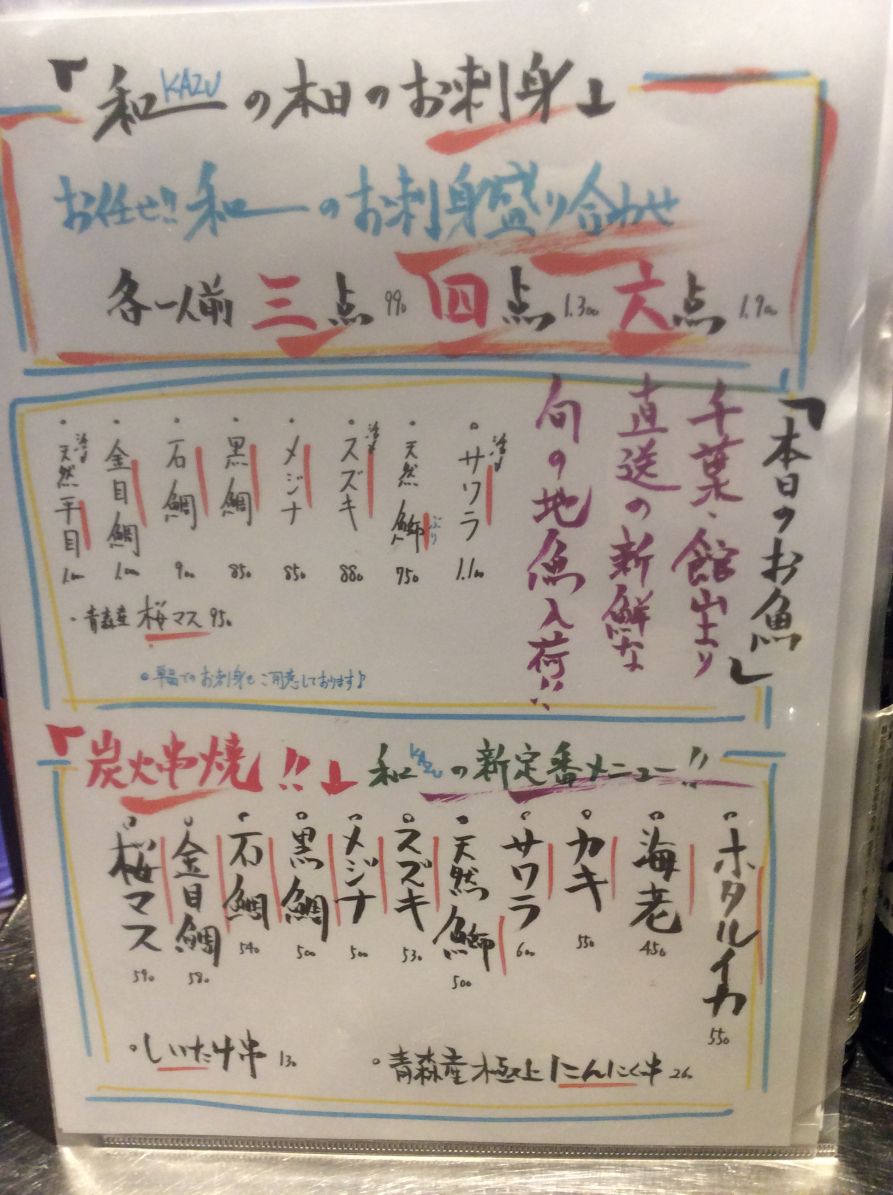 「和KAZUの本日のお刺身」
お任せ!!和のお刺身盛り合わせ
各一人前 三点 990 四点 1.300 六点 1.900
「本日のお魚」
千葉、館山より
直送の新鮮な
旬の地魚入荷!!
・サワラ 1.100
・天然鰤 ぶり 750
・スズキ 880
・メジナ 850
・黒鯛 850
・石鯛 900
・金目鯛 1.000
・天然平目 1.000
・青森産 桜マス 950
・単品でのお刺身もご用意しております♪
「炭火串焼!!」和KAZUの新定番メニュー!!
・ホタルイカ 550
・海老 450
・カキ 550
・サワラ 600
・天然鰤 500
・スズキ 530
・メジナ 500
・黒鯛 500
・石鯛 540
・金目鯛 580
・桜マス 590
・しいたけ串 130
・青森産極上にんにく串 260